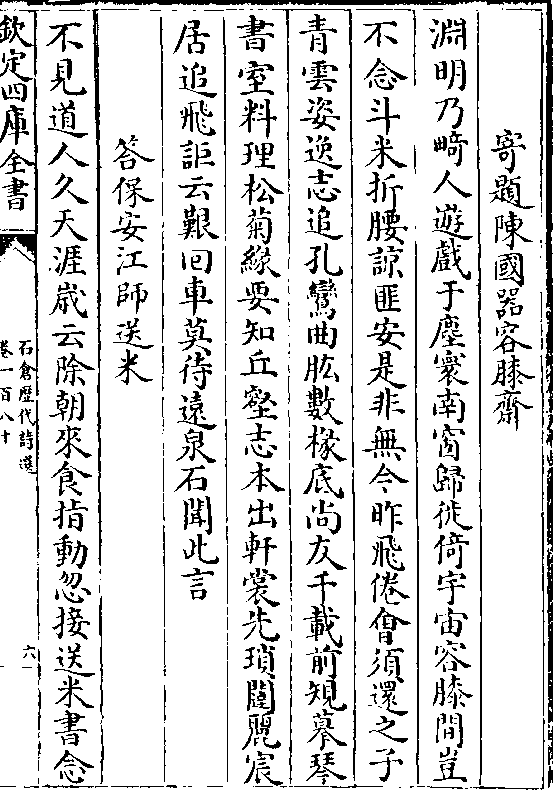 寄題陳國器容膝齋
淵明乃畸人遊戲于塵寰南窗歸徙倚宇宙容膝間豈
不念斗米折腰諒匪安是非無今昨飛倦會須還之子
青雲姿逸志追孔鸞曲肱數椽底尚友千載前規摹琴
書室料理松菊緣要知丘壑志本出軒裳先瑣闥麗宸
居追飛詎云艱回車莫待遠泉石聞此言
答保安江師送米
不見道人久天涯歲云除朝來食指動忽接送米書念
欽定四庫全書
石倉歷代詩選
卷一百八十
六一